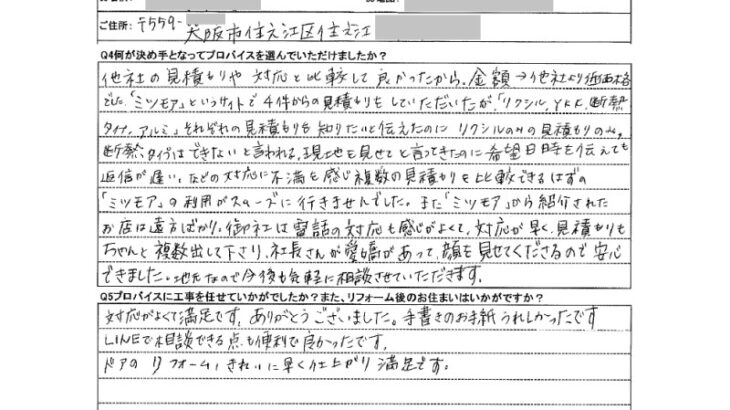 ご住所：〒559-
大阪市住之江区住之江
Q4何が決め手となってプロバイスを選んでいただけましたか？
他社の見積もりや対応と比較して良かったから。金額→他社より低価格
でした。「ミツモア」というサイトで4件からの見積もりをしていただいたが、「リクシル、YKK、断熱
タイプ、アルミ」それぞれの見積もりも知りたいと伝えたのにリクシルのみの見積もりのみ。
断熱タイプはできないと言われる。現地を見せてと言ってきたのに希望日時を伝えても
返信が遅い。などの対応に不満を感じ複数の見積もりを比較できるはずの
「ミツモア」の利用がスムーズに行きませんでした。また「ミツモア」から紹介された
お店は遠方ばかり。御社は電話の対応も感じがよくて、対応が早く、見積もりも
ちゃんと複数出して下さり、社長さんが愛嬌があって、顔を見せてくださるので安心
できました。地元なので今後も気軽に相談させていただきます。
Q5プロバイスに工事を任せていかがでしたか？また、リフォーム後のお住まいはいかがですか？
対応がよくて満足です。ありがとうございました。手書きのお手紙うれしかったです
LINEで相談できる点も便利で良かったです。
ドアのリフォーム、きれいに早く仕上がり満足です。